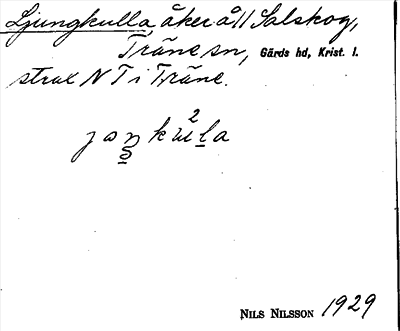 Ljungkulla, åker å // Salskog,
Träne sn, Gärds hd, Krist. l.
strax N T i Träne.
NILS NILSSON 1929